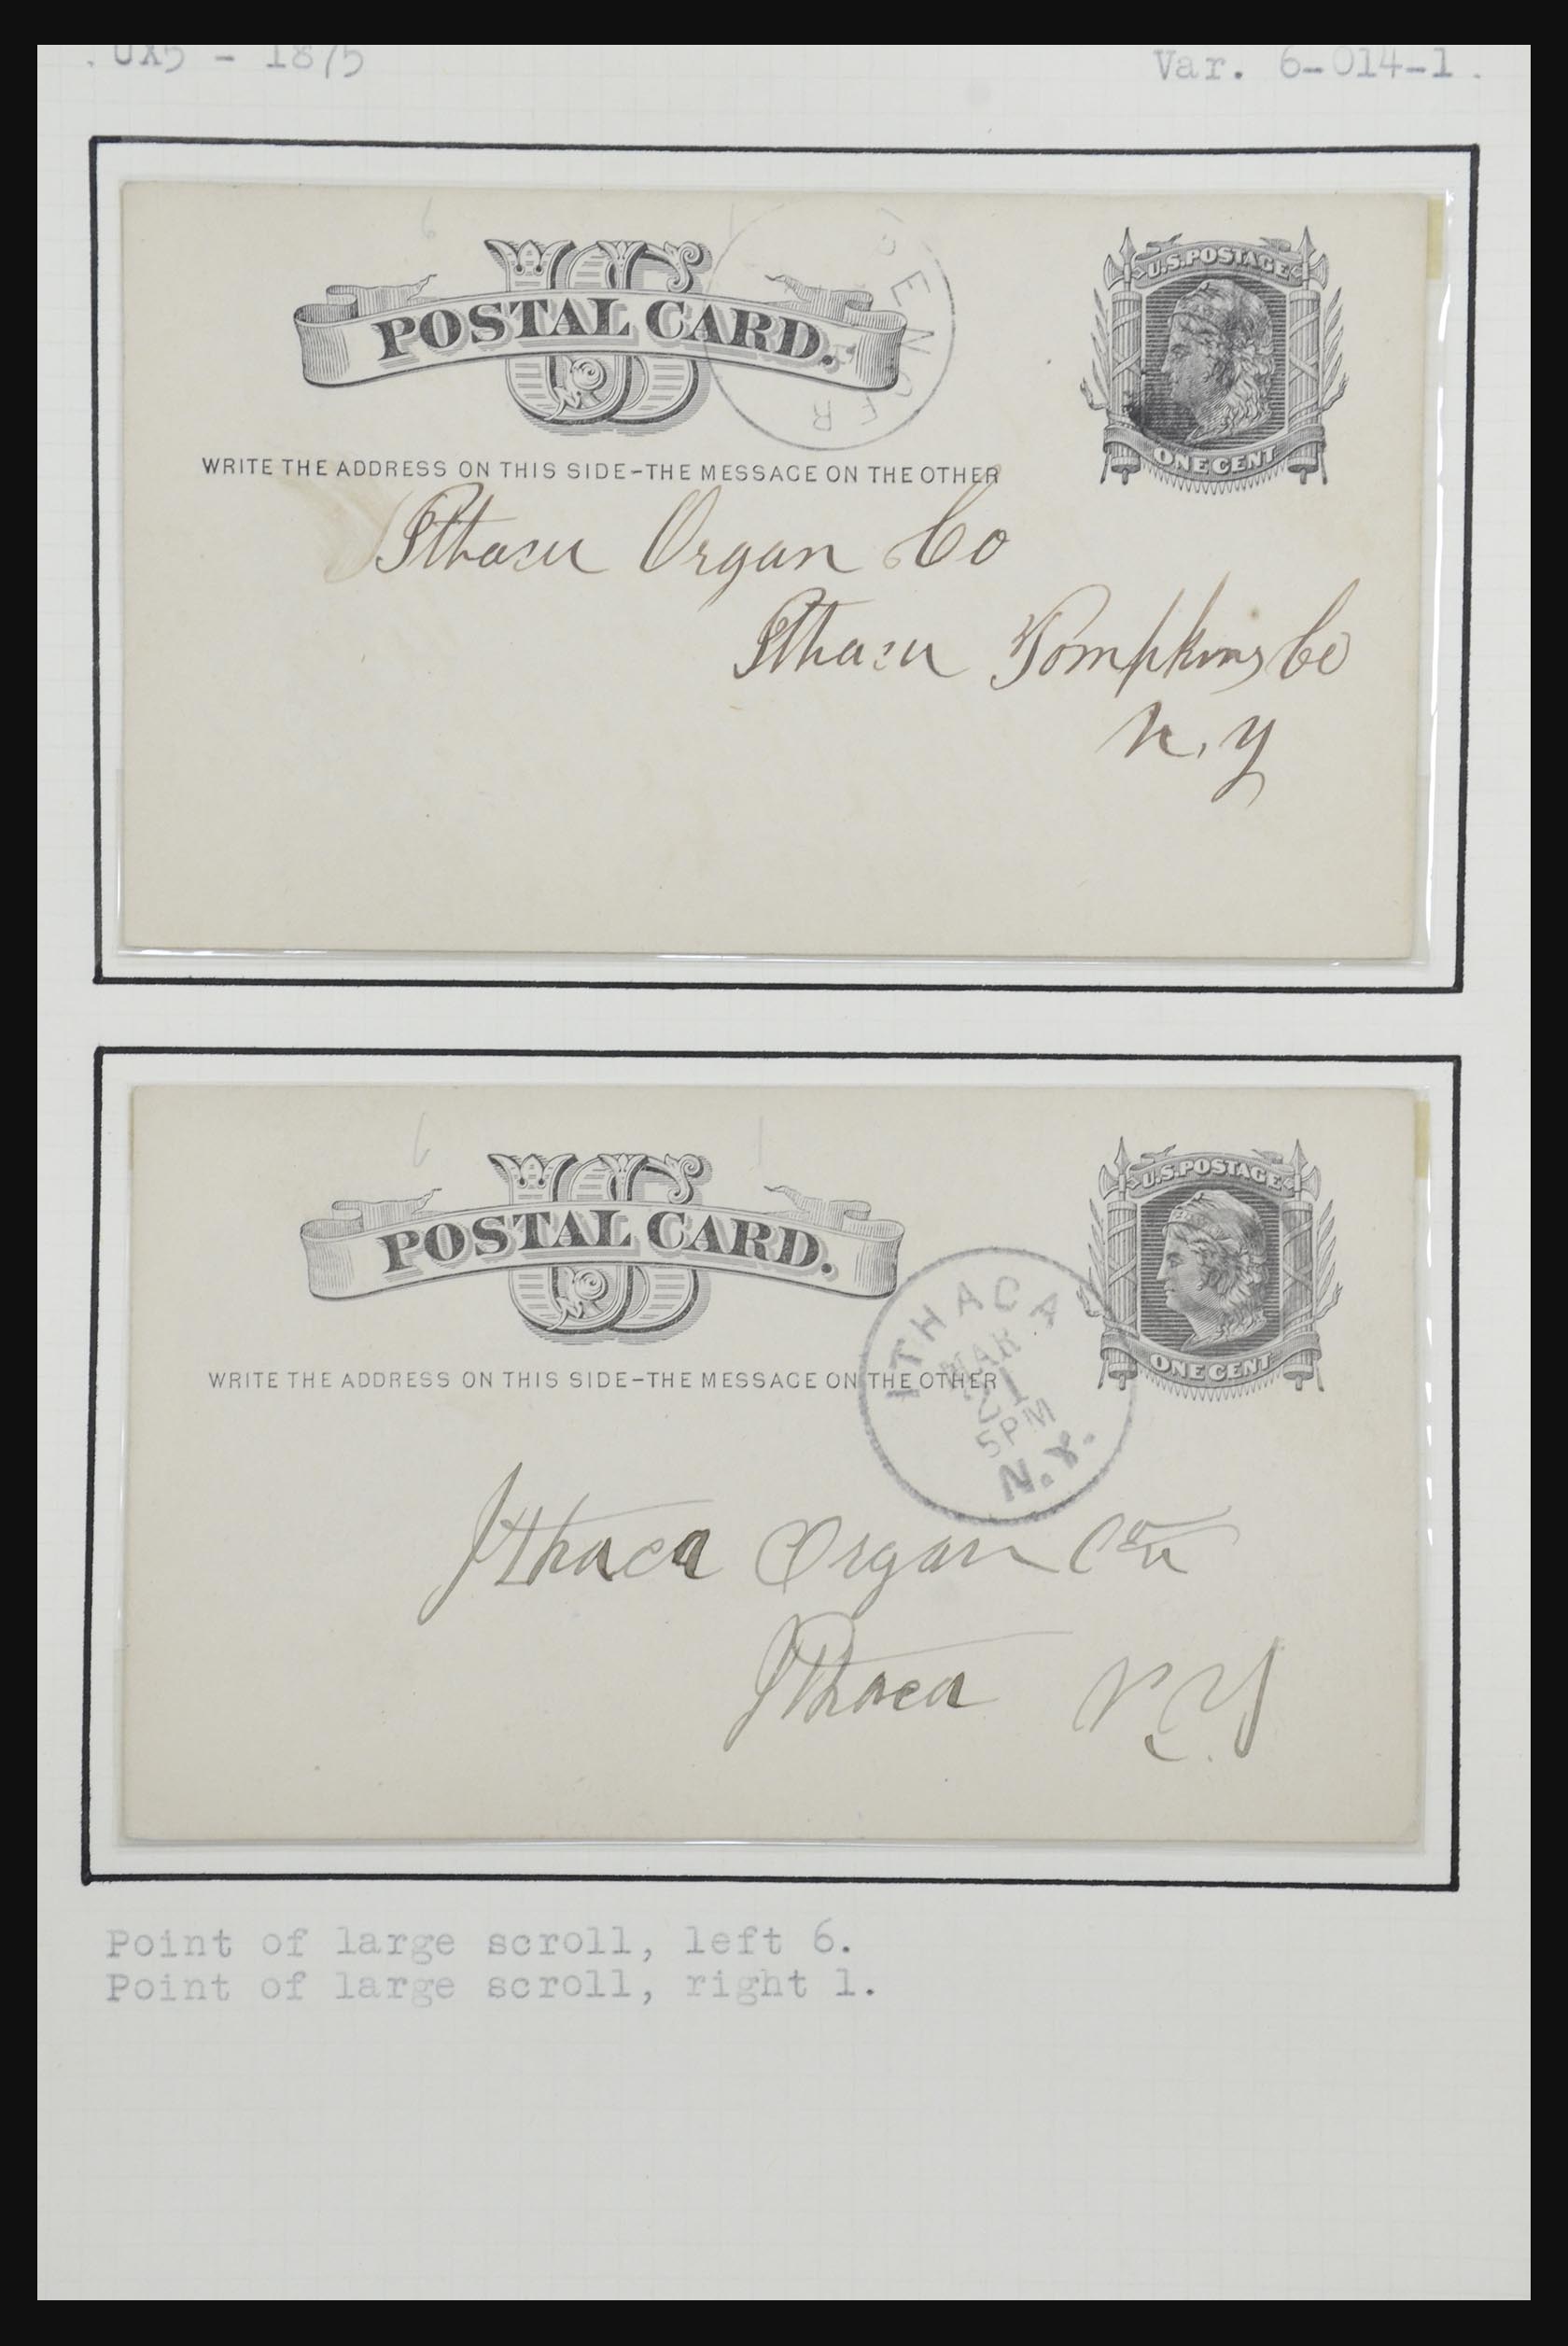 . UX5 - 1875
Var. 6-014-1.
6
1
US
POSTAL CARD.
SPENCER
U.S. POSTAGE
ONE CENT
WRITE THE ADDRESS ON THIS SIDE-THE MESSAGE ON THE OTHER
Ithaca Organ Co
Ithaca Tompkins Co
N.Y
6
1
US
POSTAL CARD.
U.S. POSTAGE
ONE CENT
WRITE THE ADDRESS ON THIS SIDE-THE MESSAGE ON THE OTHER
ITHACA
MAR
21
5PM
N.Y.
Ithaca Organ Co
Ithaca N.Y.
Point of large scroll, left 6.
Point of large scroll, right 1.